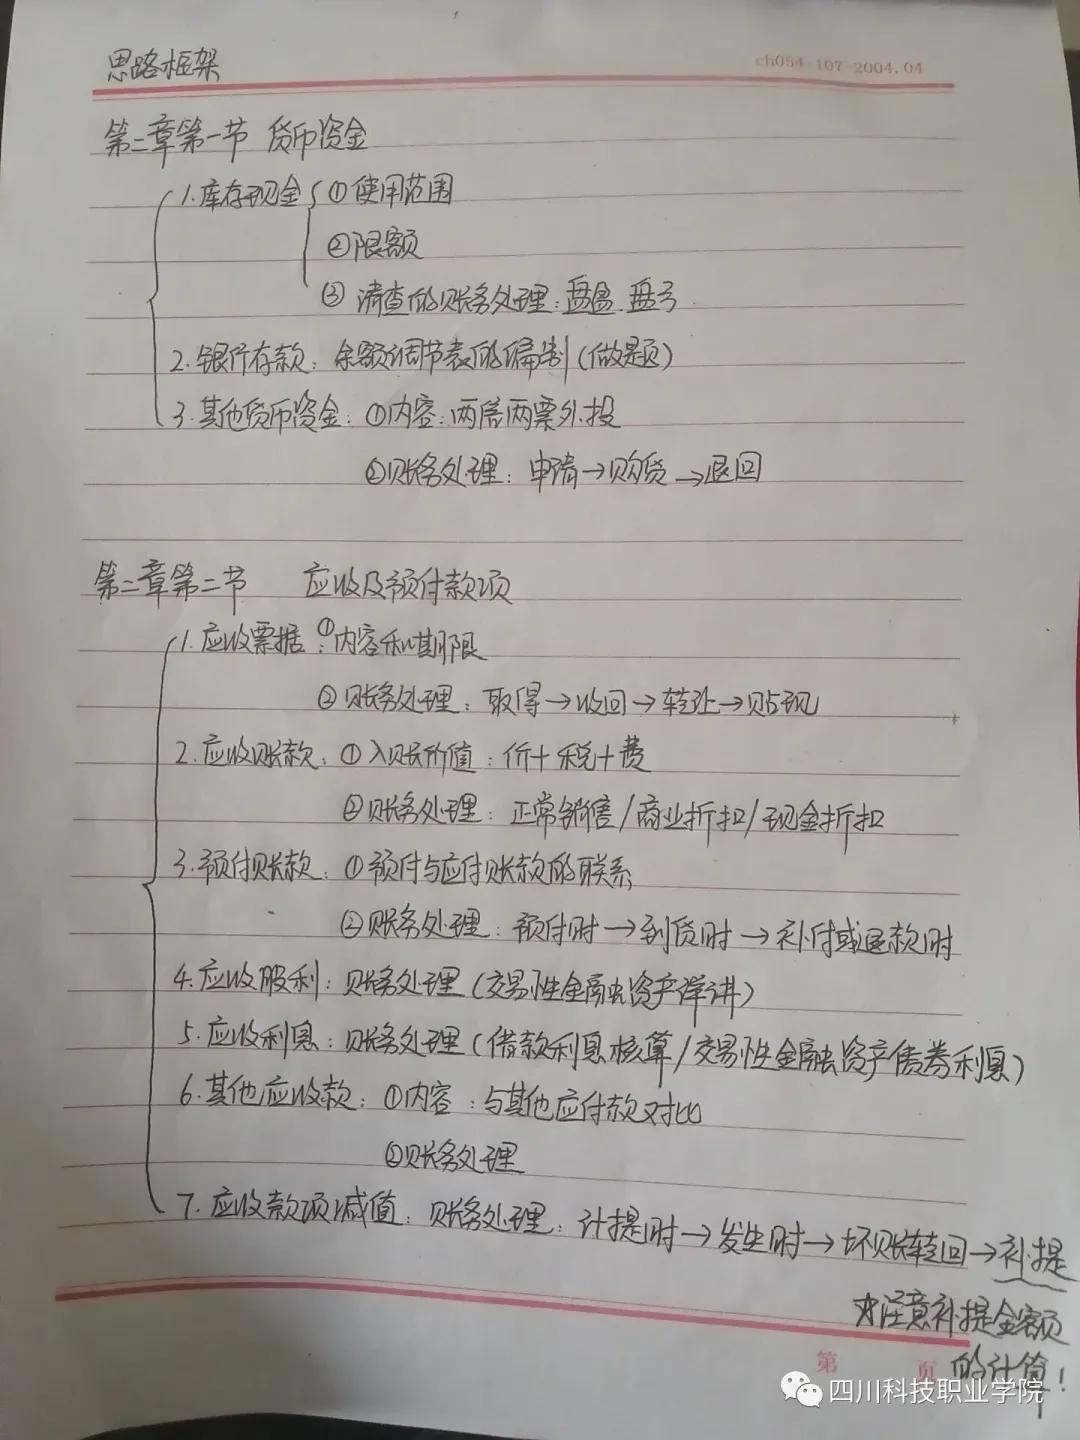 思路框架
ch054-107-2004.04
第二章第一节 货币资金
1.库存现金 ①使用范围
②限额
③ 清查的账务处理：盘盈.盘亏
2.银行存款：余额调节表的编制(做题)
3.其他货币资金：①内容：两信两票外投
②账务处理：申请→购货→退回
第二章第二节 应收及预付款项
1.应收票据：①内容和期限
②账务处理：取得→收回→转让→贴现
2.应收账款：①入账价值：价+税+费
②账务处理：正常销售/商业折扣/现金折扣
3.预付账款：①预付与应付账款的联系
②账务处理：预付时→到货时→补付或退款时
4.应收股利：账务处理(交易性金融资产详讲)
5.应收利息：账务处理(借款利息核算/交易性金融资产债券利息)
6.其他应收款：①内容：与其他应付款对比
②账务处理
7.应收款项减值：账务处理：计提时→发生时→坏账转回→补提
☆注意补提金额
的计算！
第 页
四川科技职业学院